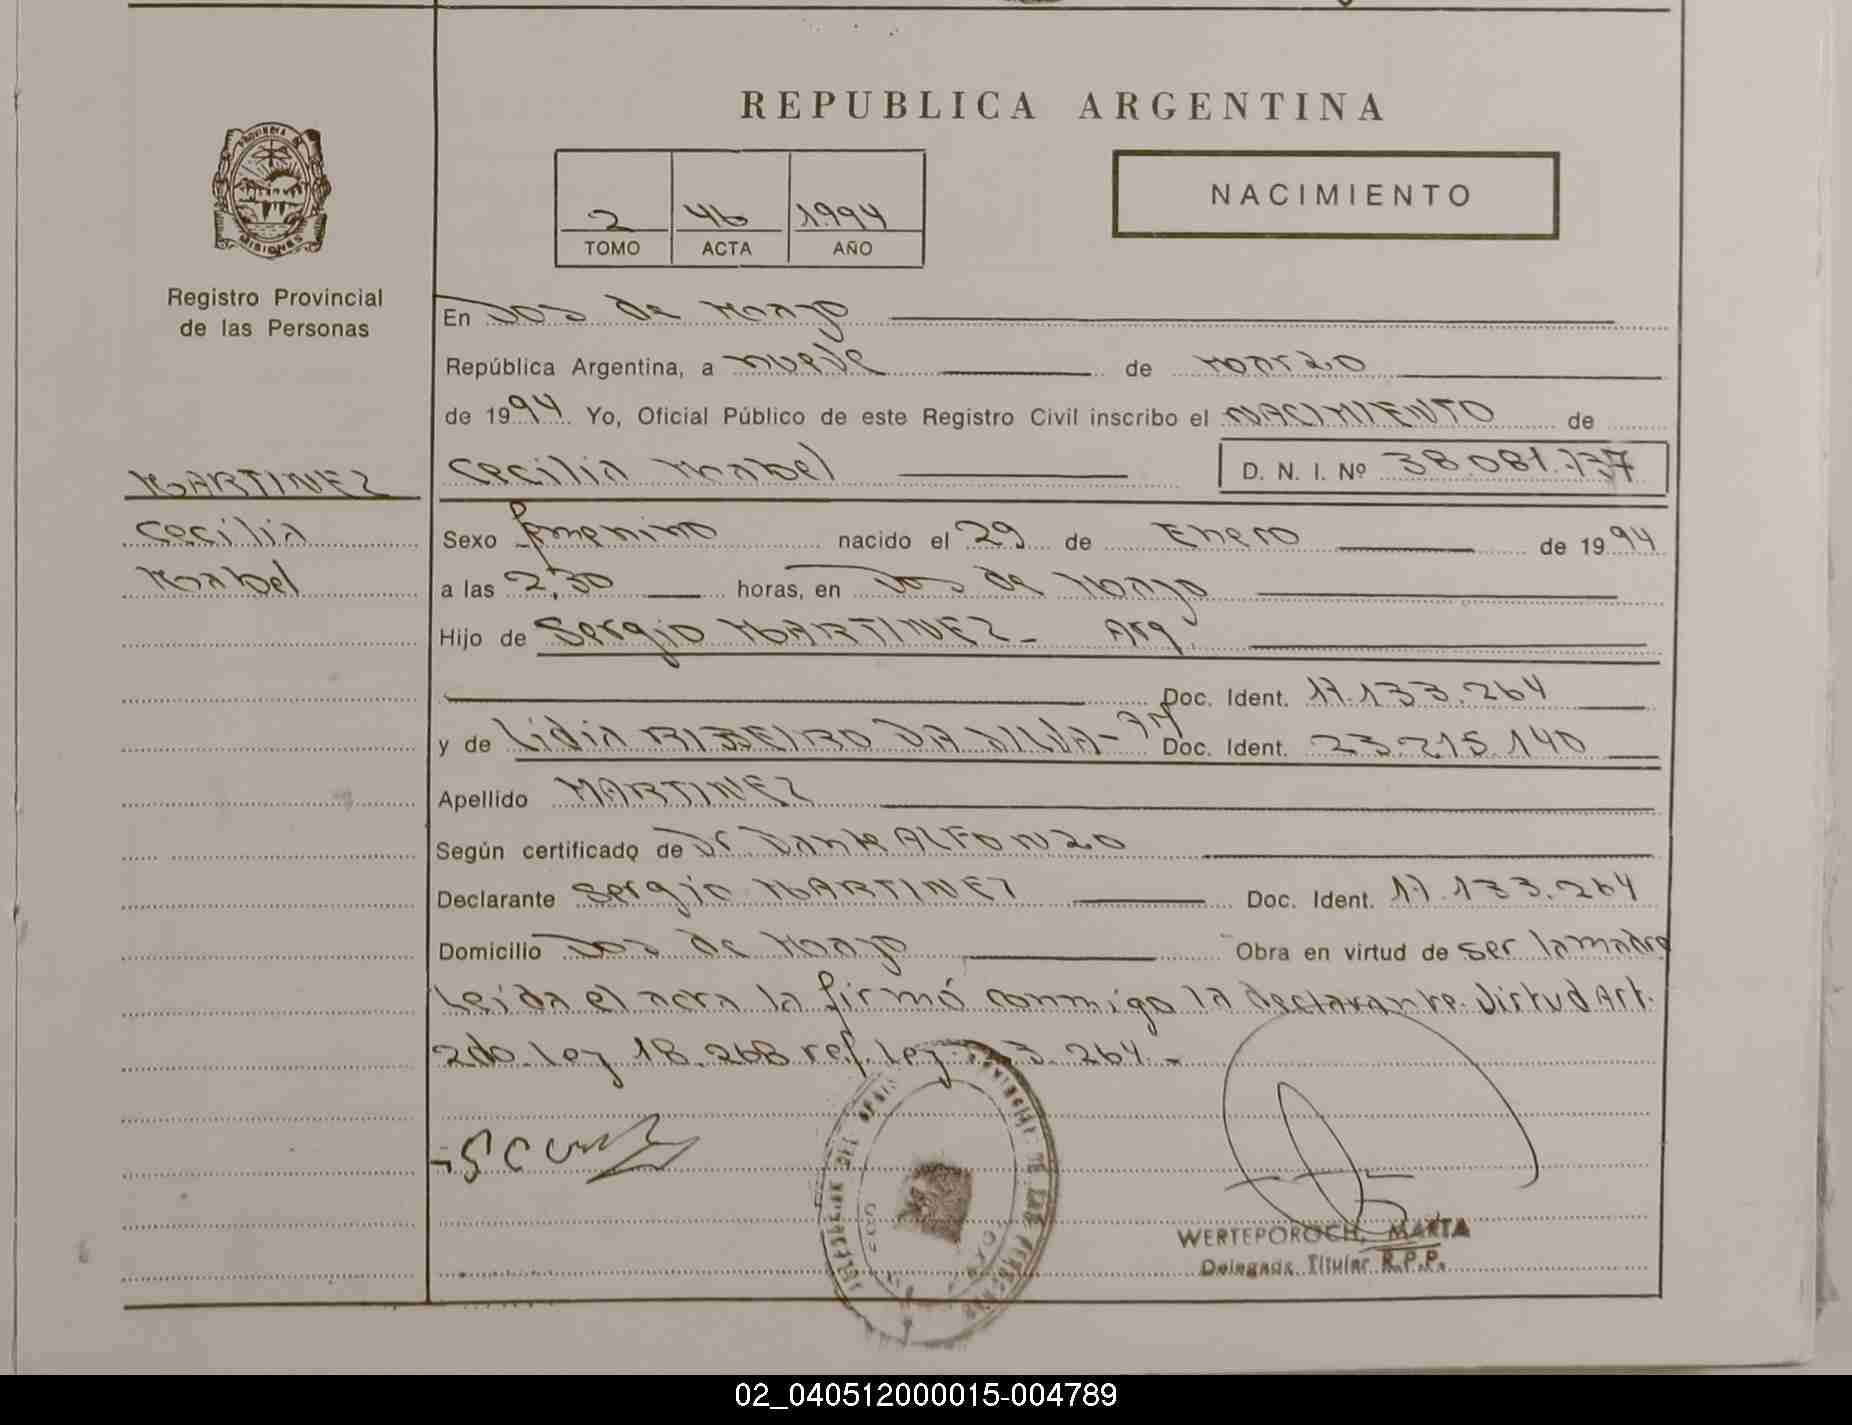 REPUBLICA ARGENTINA
NACIMIENTO
2 46 1994
TOMO ACTA AÑO
PROVINCIA DE
MISIONES
Registro Provincial
de las Personas
MARTINEZ
Cecilia
Mabel
En Dos de Mayo
República Argentina, a nueve de Marzo
de 1994 Yo, Oficial Público de este Registro Civil inscribo el NACIMIENTO de
Cecilia Mabel D. N. I. Nº 38.081.737
Sexo femenino nacido el 29 de Enero de 1994
a las 2,30 horas, en Dos de Mayo
Hijo de Sergio MARTINEZ- Arg.
Doc. Ident. 17.133.264
y de Lidia RIBEIRO DA SILVA- Doc. Ident. 23.215.140
Apellido MARTINEZ
Según certificado de Dr. ALFONZO
Declarante Sergio MARTINEZ Doc. Ident. 17.133.264
Domicilio Dos de Mayo Obra en virtud de ser la madre
Leída el acta la firmó conmigo la declarante. Virtud Art.
2do. Ley 18.268 ref. Ley 23.264.-
WERTEPOROCH, MARTA
Delegada Titular R.P.P.
02_040512000015-004789